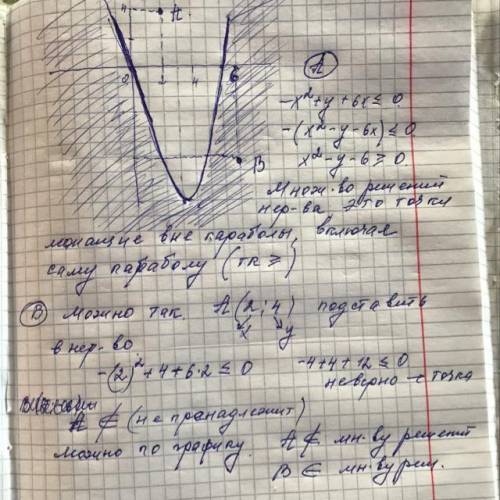 4 A
2 4 6
B
A
-x²+y+6x ≤ 0
-(x²-y-6x) ≤ 0
x²-y-6 ≥ 0
Множ-во решений
нер-ва это точки
лежащие вне параболы, включая
саму параболу (тк ≥)
B можно так. A(2;4) подставить
x y
в нер-во
-(2)²+4+6·2 ≤ 0 -4+4+12 ≤ 0
неверно точка
A ∉ (не пренадлежит)
можно по графику. A ∉ мн-ву решений
B ∈ мн-ву реш.